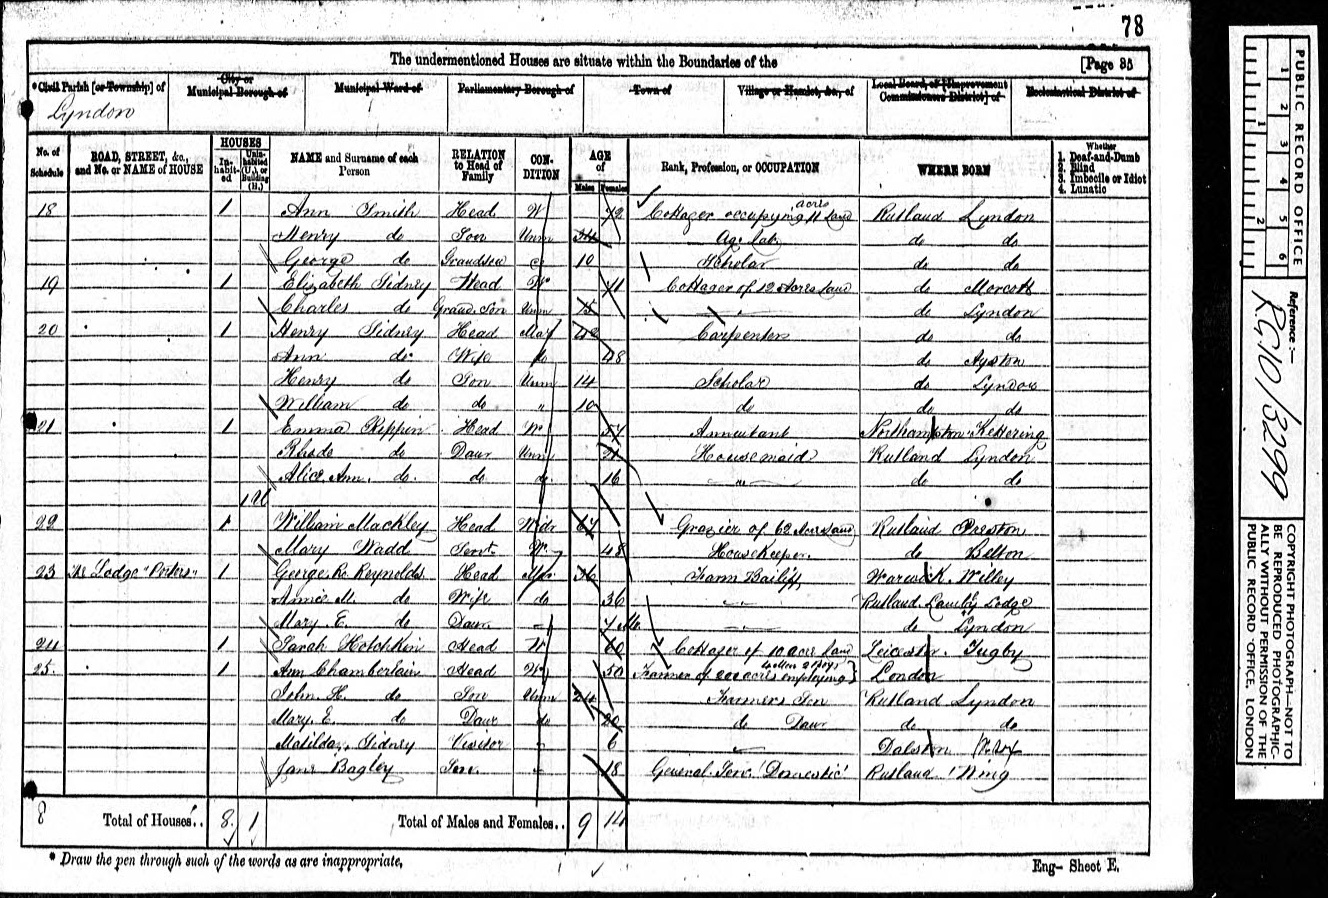 78
The undermentioned Houses are situate within the Boundaries of the [Page 35
*Civil Parish [or Township] of City or Municipal Borough of Municipal Ward of Parliamentary Borough of Town of Village or Hamlet, &c., of Local Board, or [Improvement Commissioners District] of Ecclesiastical District of
Lyndon
No. of Schedule ROAD, STREET, &c., and No. or NAME of HOUSE HOUSES Inhabited Uninhabited (U.), or Building (B.) NAME and Surname of each Person RELATION to Head of Family CONDITION AGE of Males Females Rank, Profession, or OCCUPATION WHERE BORN Whether 1. Deaf-and-Dumb 2. Blind 3. Imbecile or Idiot 4. Lunatic
18 1 Ann Smith Head W 72 Cottager occupying 11 acres Land Rutland Lyndon
Henry do Son Unm Ag. lab. do do
George do Grandson 10 Scholar do do
19 1 Elizabeth Sidney Head W 71 Cottager of 12 Acres Land do Morcott
Charles do Grand Son Unm 15 do Lyndon
20 1 Henry Sidney Head Mar 42 Carpenter do do
Ann do Wife do 48 do Ayston
Henry do Son Unm 14 Scholar do Lyndon
William do do " 10 do do do
21 1 Emma Pippin Head W 57 Annuitant Northampton Kettering
Rhoda do Daur Unm 21 Housemaid Rutland Lyndon
Alice Ann do do do 16 " do do
1 U
22 1 William Mackley Head Widr 67 Grazier of 62 Acres Land Rutland Preston
Mary Wadd Servt W 48 Housekeeper do Belton
23 The Lodge "Porters" 1 George R. Reynolds Head Mar 36 Farm Bailiff Warwick Willey
Annie M. do Wife do 36 " Rutland Lodge
Mary E. do Daur 7 Mo " do Lyndon
24 1 Sarah Hotchkin Head W 60 Cottager of 10 acres Land Leicester Tugby
25 1 Ann Chamberlain Head W 50 Farmer of acres employing 4 Men 2 Boys London
John H. do Son Unm 24 Farmers Son Rutland Lyndon
Mary E. do Daur do 20 do Daur do do
Matilda Sidney Visitor " 6 Dalston
Jane Bagley Ser. " 18 General Ser. 'Domestic' Rutland Wing
8 Total of Houses.. 8 1 Total of Males and Females.. 9 14
* Draw the pen through such of the words as are inappropriate.
Eng- Sheet E.
PUBLIC RECORD OFFICE
1 2 3 4 5 6
1 2
Reference :-
RG10/3299
COPYRIGHT PHOTOGRAPH—NOT TO
BE REPRODUCED PHOTOGRAPHIC-
ALLY WITHOUT PERMISSION OF THE
PUBLIC RECORD OFFICE, LONDON